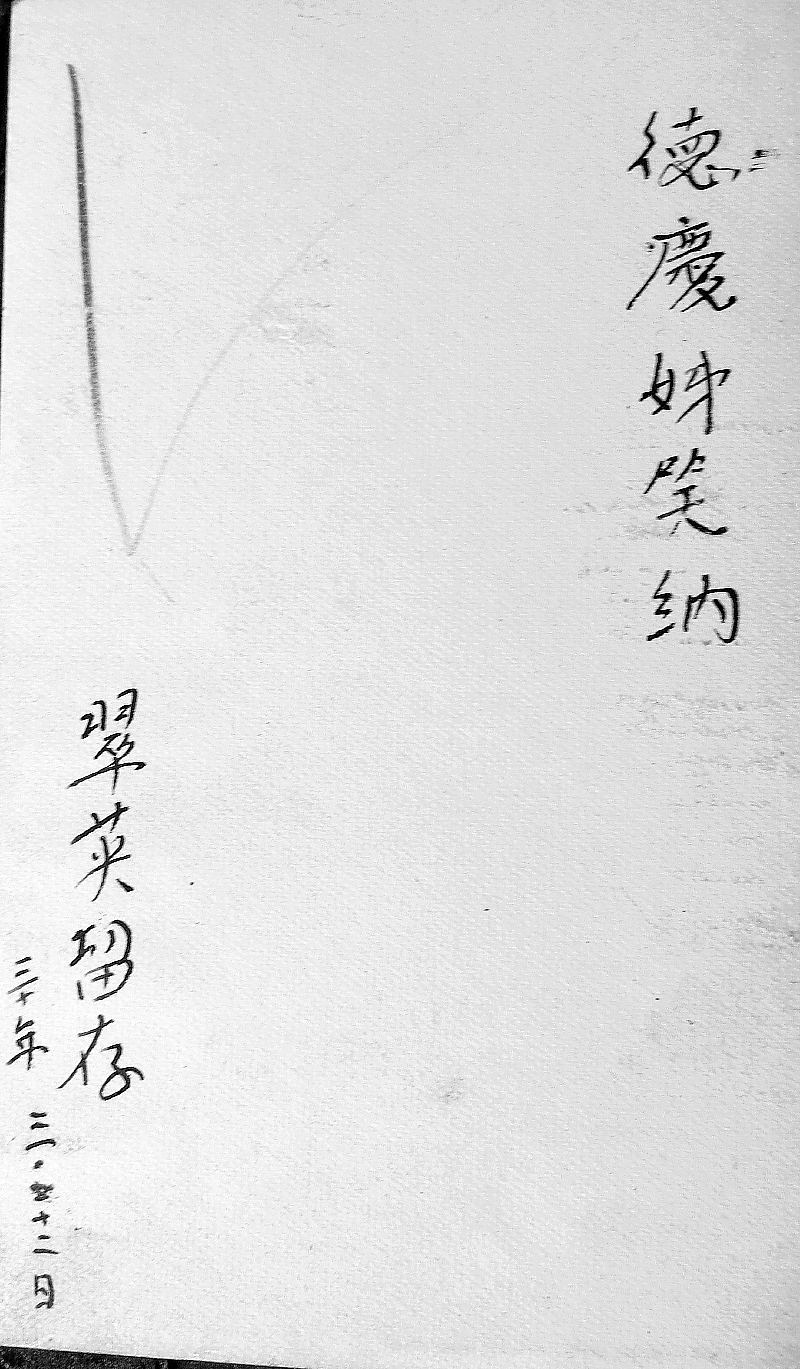 德慶姊笑納
翠英留存
三十年 三.十二日